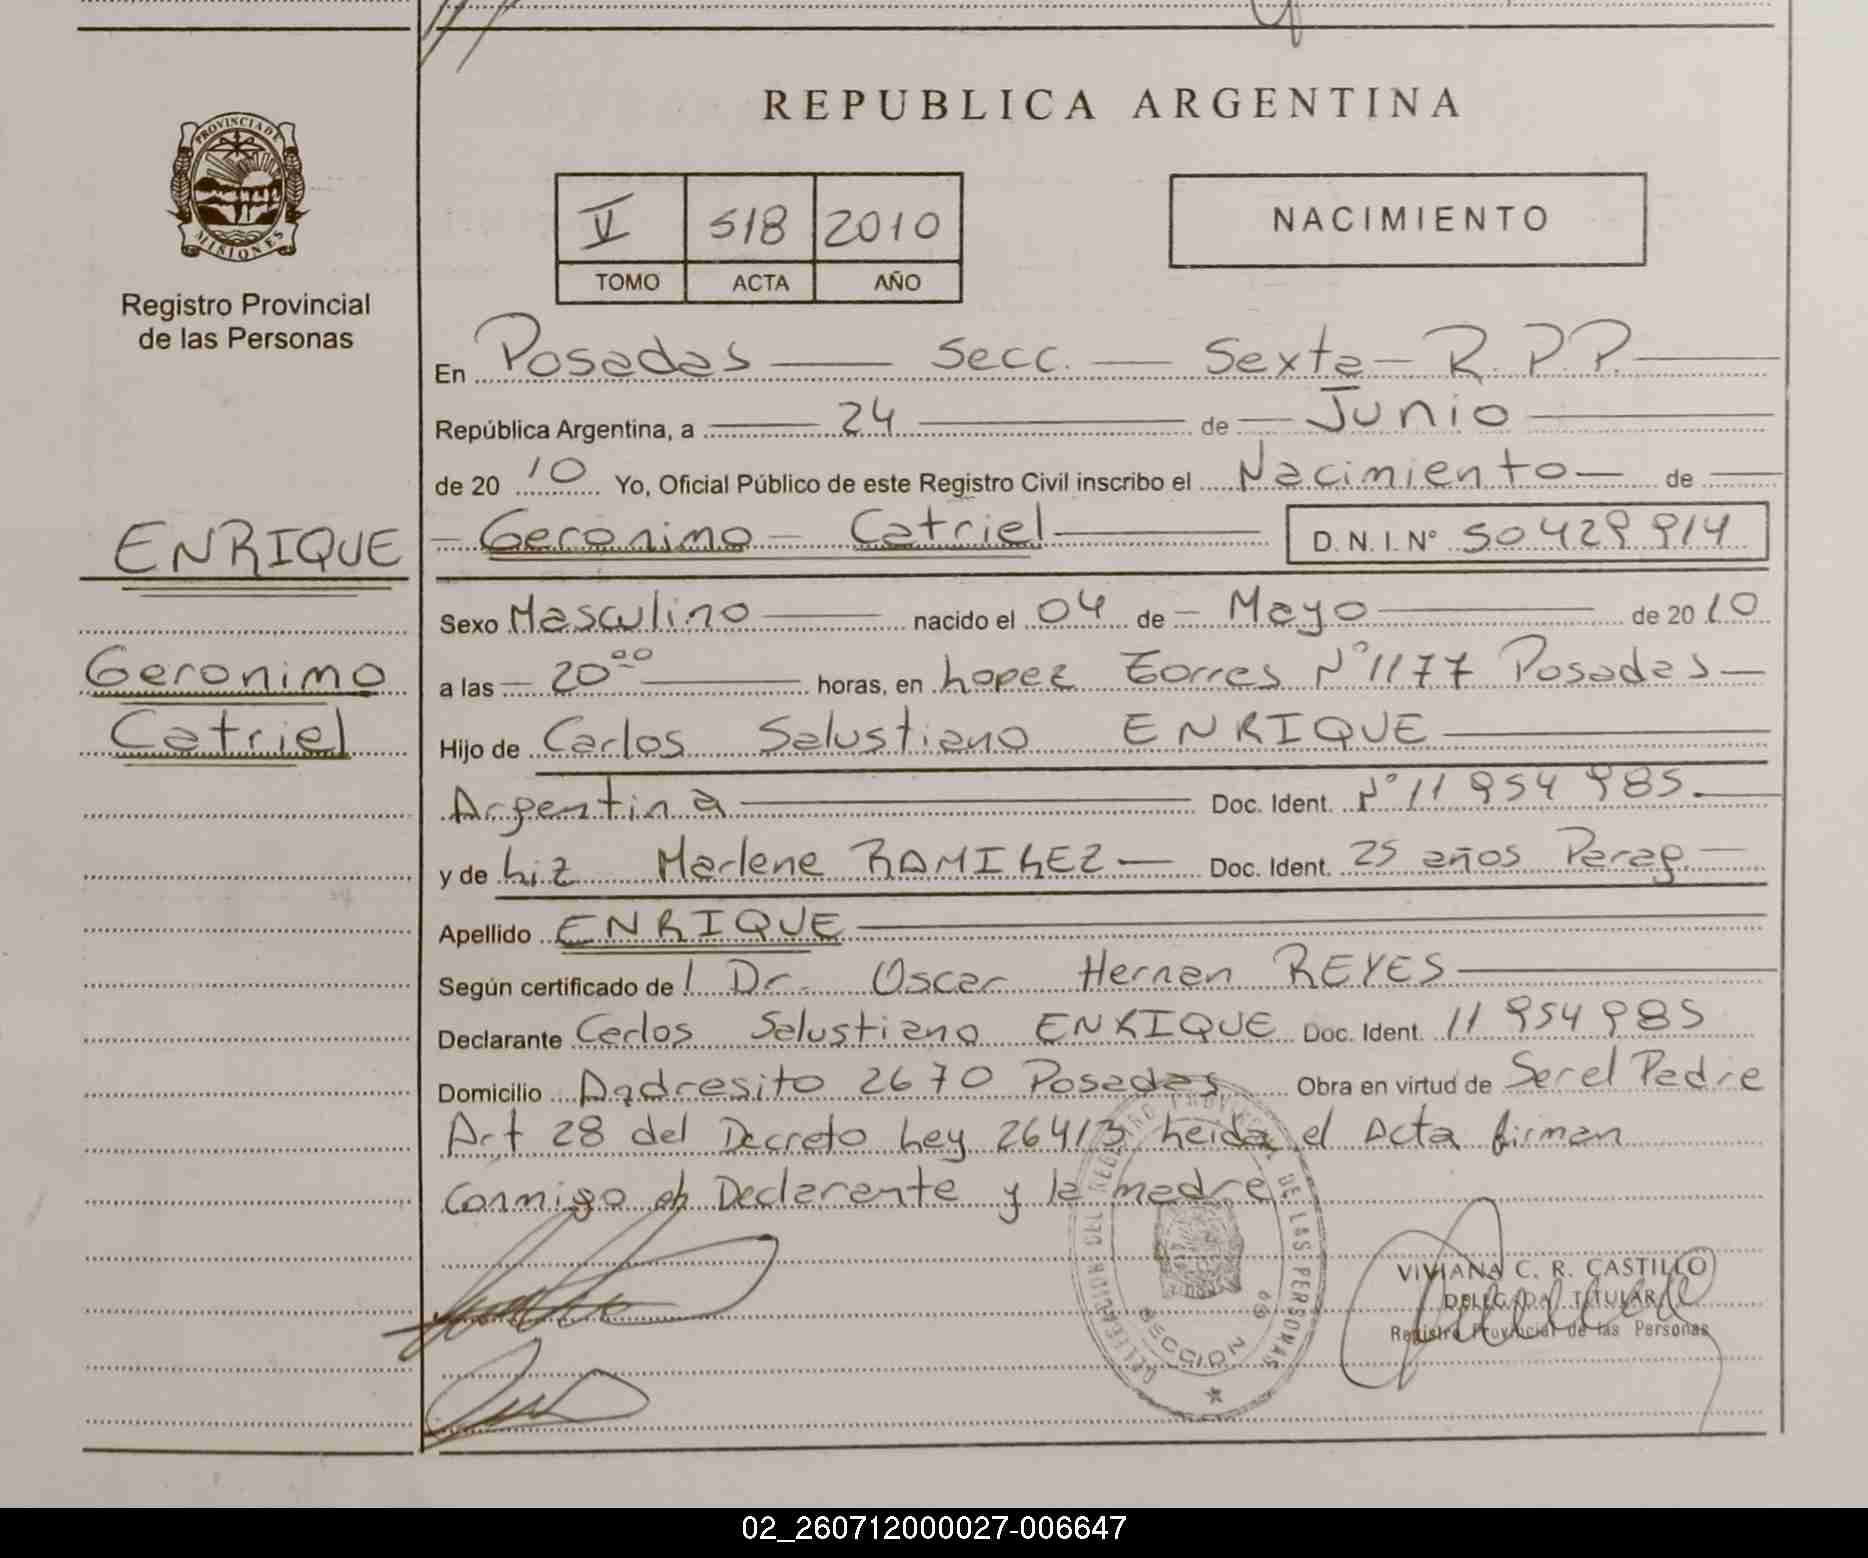 REPUBLICA ARGENTINA
PROVINCIA DE
MISIONES
Registro Provincial
de las Personas
V 518 2010
TOMO ACTA AÑO
NACIMIENTO
En Posadas Secc. Sexta R.P.P.
República Argentina, a 24 de Junio
de 20 10 Yo, Oficial Público de este Registro Civil inscribo el Nacimiento de
ENRIQUE
Geronimo Catriel D.N.I. N° 50429914
Sexo Masculino nacido el 04 de Mayo de 20 10
Geronimo
a las 20 00 horas, en Lopez Torres N° 1177 Posadas
Catriel
Hijo de Carlos Salustiano ENRIQUE
Argentina Doc. Ident. N° 11 954 985
y de Liz Marlene RAMIREZ Doc. Ident. 25 años Parag.
Apellido ENRIQUE
Según certificado de l Dr. Oscar Hernan REYES
Declarante Carlos Salustiano ENRIQUE Doc. Ident. 11 954 985
Domicilio Andresito 2670 Posadas Obra en virtud de Ser el Padre
Art 28 del Decreto Ley 26413 Leida el Acta firman
Conmigo el Declarante y la madre.
DELEGACION DEL REGISTRO PROVINCIAL DE LAS PERSONAS
SECCION 6a
VIVIANA C. R. CASTILLO
DELEGADA TITULAR
Registro Provincial de las Personas
02_260712000027-006647